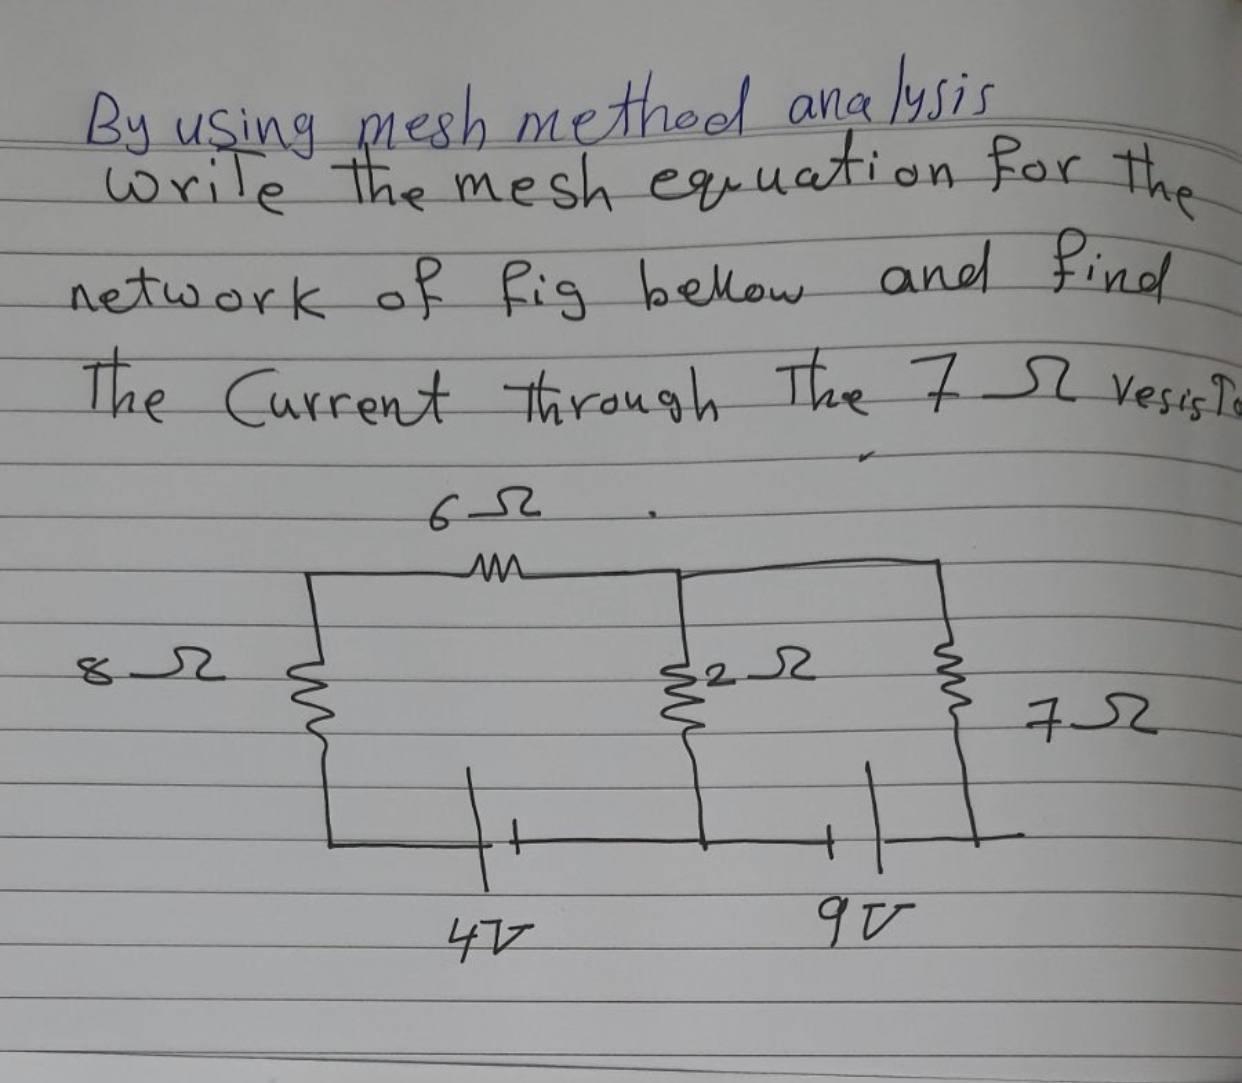 By using mesh method analysis
Write the mesh equation for the
network of fig bellow and find
The Current through The 7 Ω
6 Ω
8 Ω
2 Ω
7 Ω
4V
9V